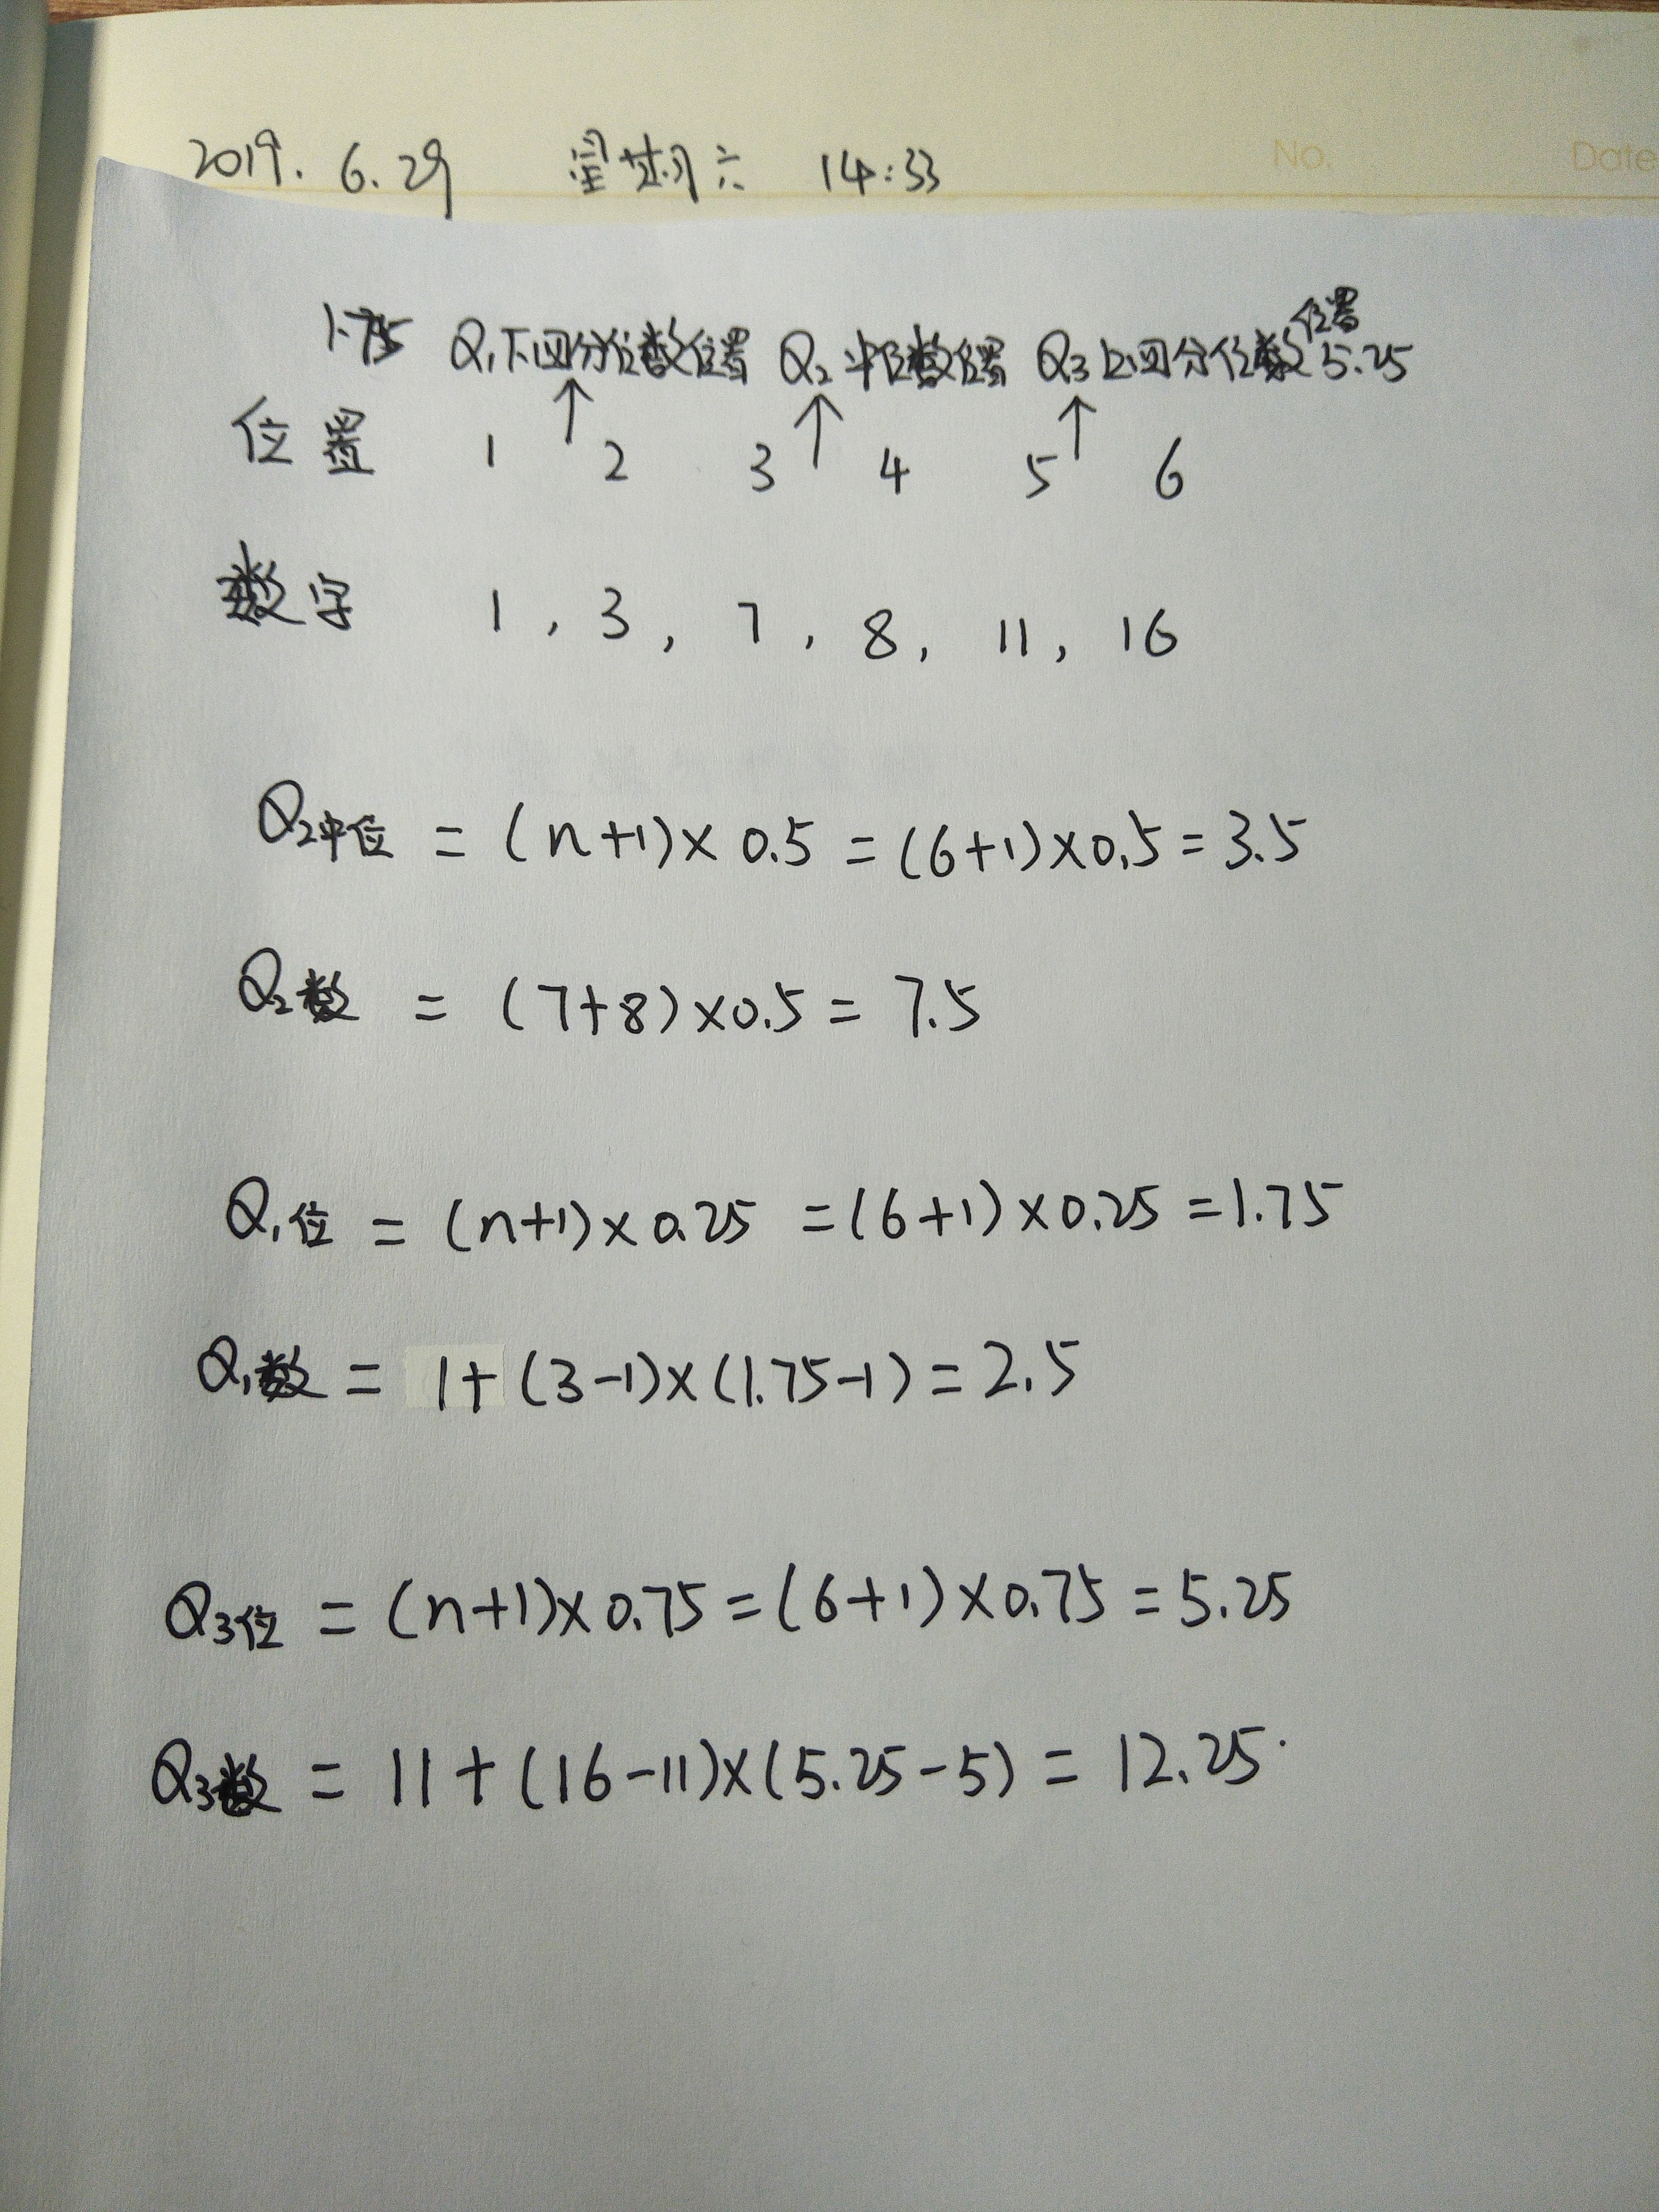 No. Date
2019. 6.29 星期六 14:33
位置
1.75 Q₁下四分位数位置 Q₂中位数位置 Q₃上四分位数 5.25
↑ ↑ ↑
位置 1 2 3 4 5 6
数字 1, 3, 7, 8, 11, 16
Q₂中位 = (n+1)×0.5=(6+1)×0.5=3.5
Q₂数 = (7+8)×0.5= 7.5
Q₁位 = (n+1)×0.25 =(6+1)×0.25=1.75
Q₁数 = 1+(3-1)×(1.75-1)=2.5
Q₃位 = (n+1)×0.75=(6+1)×0.75=5.25
Q₃数 = 11+(16-11)×(5.25-5)= 12.25